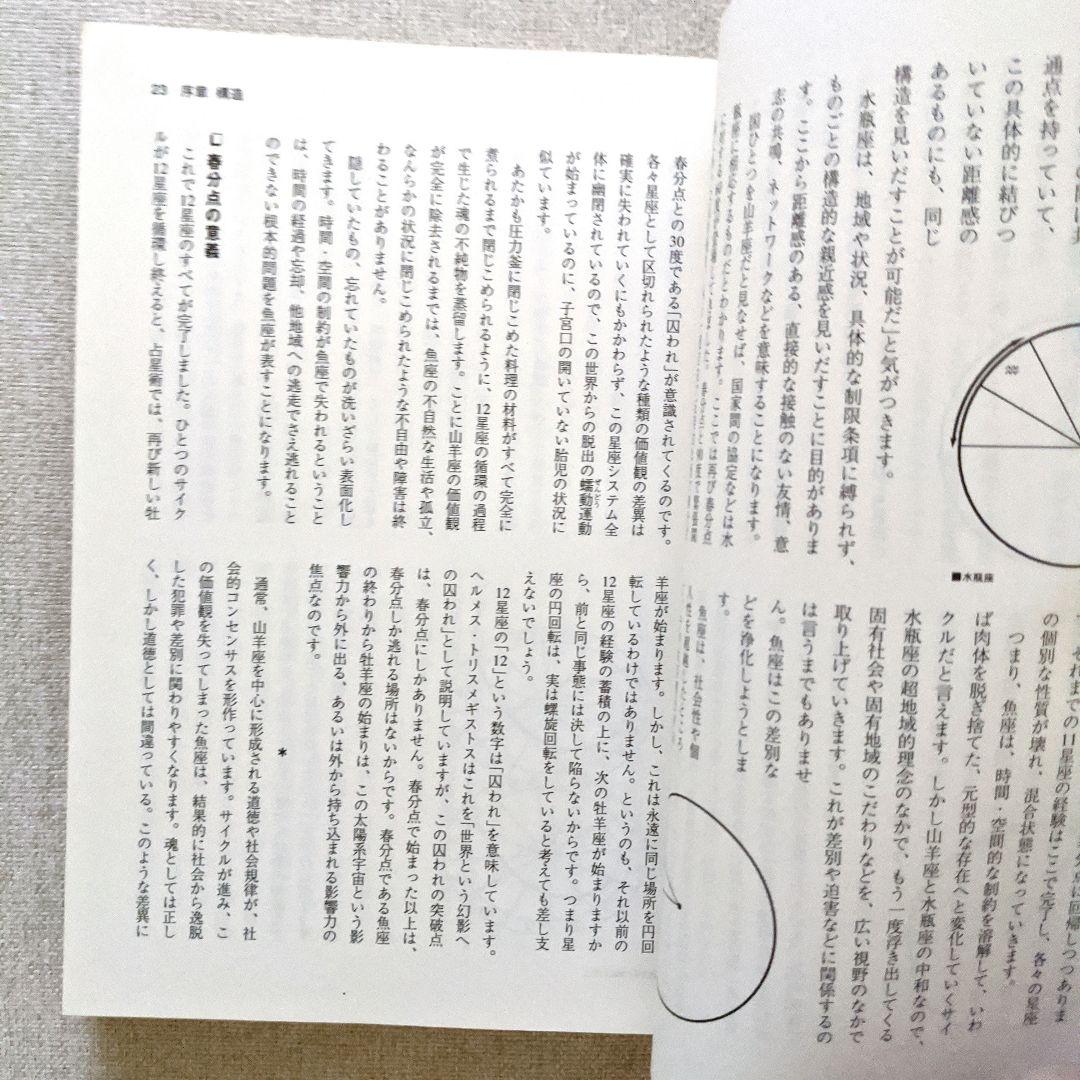 通点を持っていて、
この具体的に結びつ
いていない距離感の
あるものにも、同じ
構造を見いだすことが可能だ」と気がつきます。
水瓶座は、地域や状況、具体的な制限条項に縛られず、
ものごとの構造的な親近感を見いだすことに目的がありま
す。ここから距離感のある、直接的な接触のない友情、意
志の共鳴、ネットワークなどを意味することになります。
国ひとつを山羊座だと見なせば、国家間の協定などは水
■水瓶座
外点に回帰しつつありま
す。それまでの11星座の経験はここで完了し、各々の星座
の個別な性質が壊れ、混合状態になっていきます。
つまり、魚座は、時間・空間的な制約を溶解して、いわ
ば肉体を脱ぎ捨てた、元型的な存在へと変化していくサイ
クルだと言えます。しかし山羊座と水瓶座の中和なので、
水瓶座の超地域的理念のなかで、もう一度浮き出してくる
固有社会や固有地域のこだわりなどを、広い視野のなかで
取り上げていきます。これが差別や迫害などに関係するの
は言うまでもありませ
ん。魚座はこの差別な
どを浄化しようとしま
す。
魚座は、社会性や個
23 序章 構造
春分点との30度である「囚われ」が意識されてくるのです。
各々星座として区切れられたような種類の価値観の差異は
確実に失われていくにもかかわらず、この星座システム全
体に幽閉されているので、この世界からの脱出の蠕動運動
ぜんどう
が始まっているのに、子宮口の開いていない胎児の状況に
似ています。
あたかも圧力釜に閉じこめた料理の材料がすべて完全に
煮られるまで閉じこめられるように、12星座の循環の過程
で生じた魂の不純物を蒸留します。ことに山羊座の価値観
が完全に除去されるまでは、魚座の不自然な生活や孤立、
なんらかの状況に閉じこめられたような不自由や障害は終
わることがありません。
隠していたもの、忘れていたものが洗いざらい表面化し
てきます。時間・空間の制約が魚座で失われるということ
は、時間の経過や忘却、他地域への逃走でさえ逃れること
のできない根本的問題を魚座が表すことになります。
春分点の意義
これで12星座のすべてが完了しました。ひとつのサイク
ルが12星座を循環し終えると、占星術では、再び新しい牡
羊座が始まります。しかし、これは永遠に同じ場所を円回
転しているわけではありません。というのも、それ以前の
12星座の経験の蓄積の上に、次の牡羊座が始まりますか
ら、前と同じ事態には決して陥らないからです。つまり星
座の円回転は、実は螺旋回転をしていると考えても差し支
えないでしょう。
12星座の「12」という数字は「囚われ」を意味しています。
ヘルメス・トリスメギストスはこれを「世界という幻影へ
の囚われ」として説明していますが、この囚われの突破点
は、春分点にしかありません。春分点で始まった以上は、
春分点しか逃れる場所はないからです。春分点である魚座
の終わりから牡羊座の始まりは、この太陽系宇宙という影
響力から外に出る、あるいは外から持ち込まれる影響力の
焦点なのです。
*
通常、山羊座を中心に形成される道徳や社会規律が、社
会的コンセンサスを形作っています。サイクルが進み、こ
の価値観を失ってしまった魚座は、結果的に社会から逸脱
した犯罪や差別に関わりやすくなります。魂としては正し
く、しかし道徳としては間違っている。このような差異に